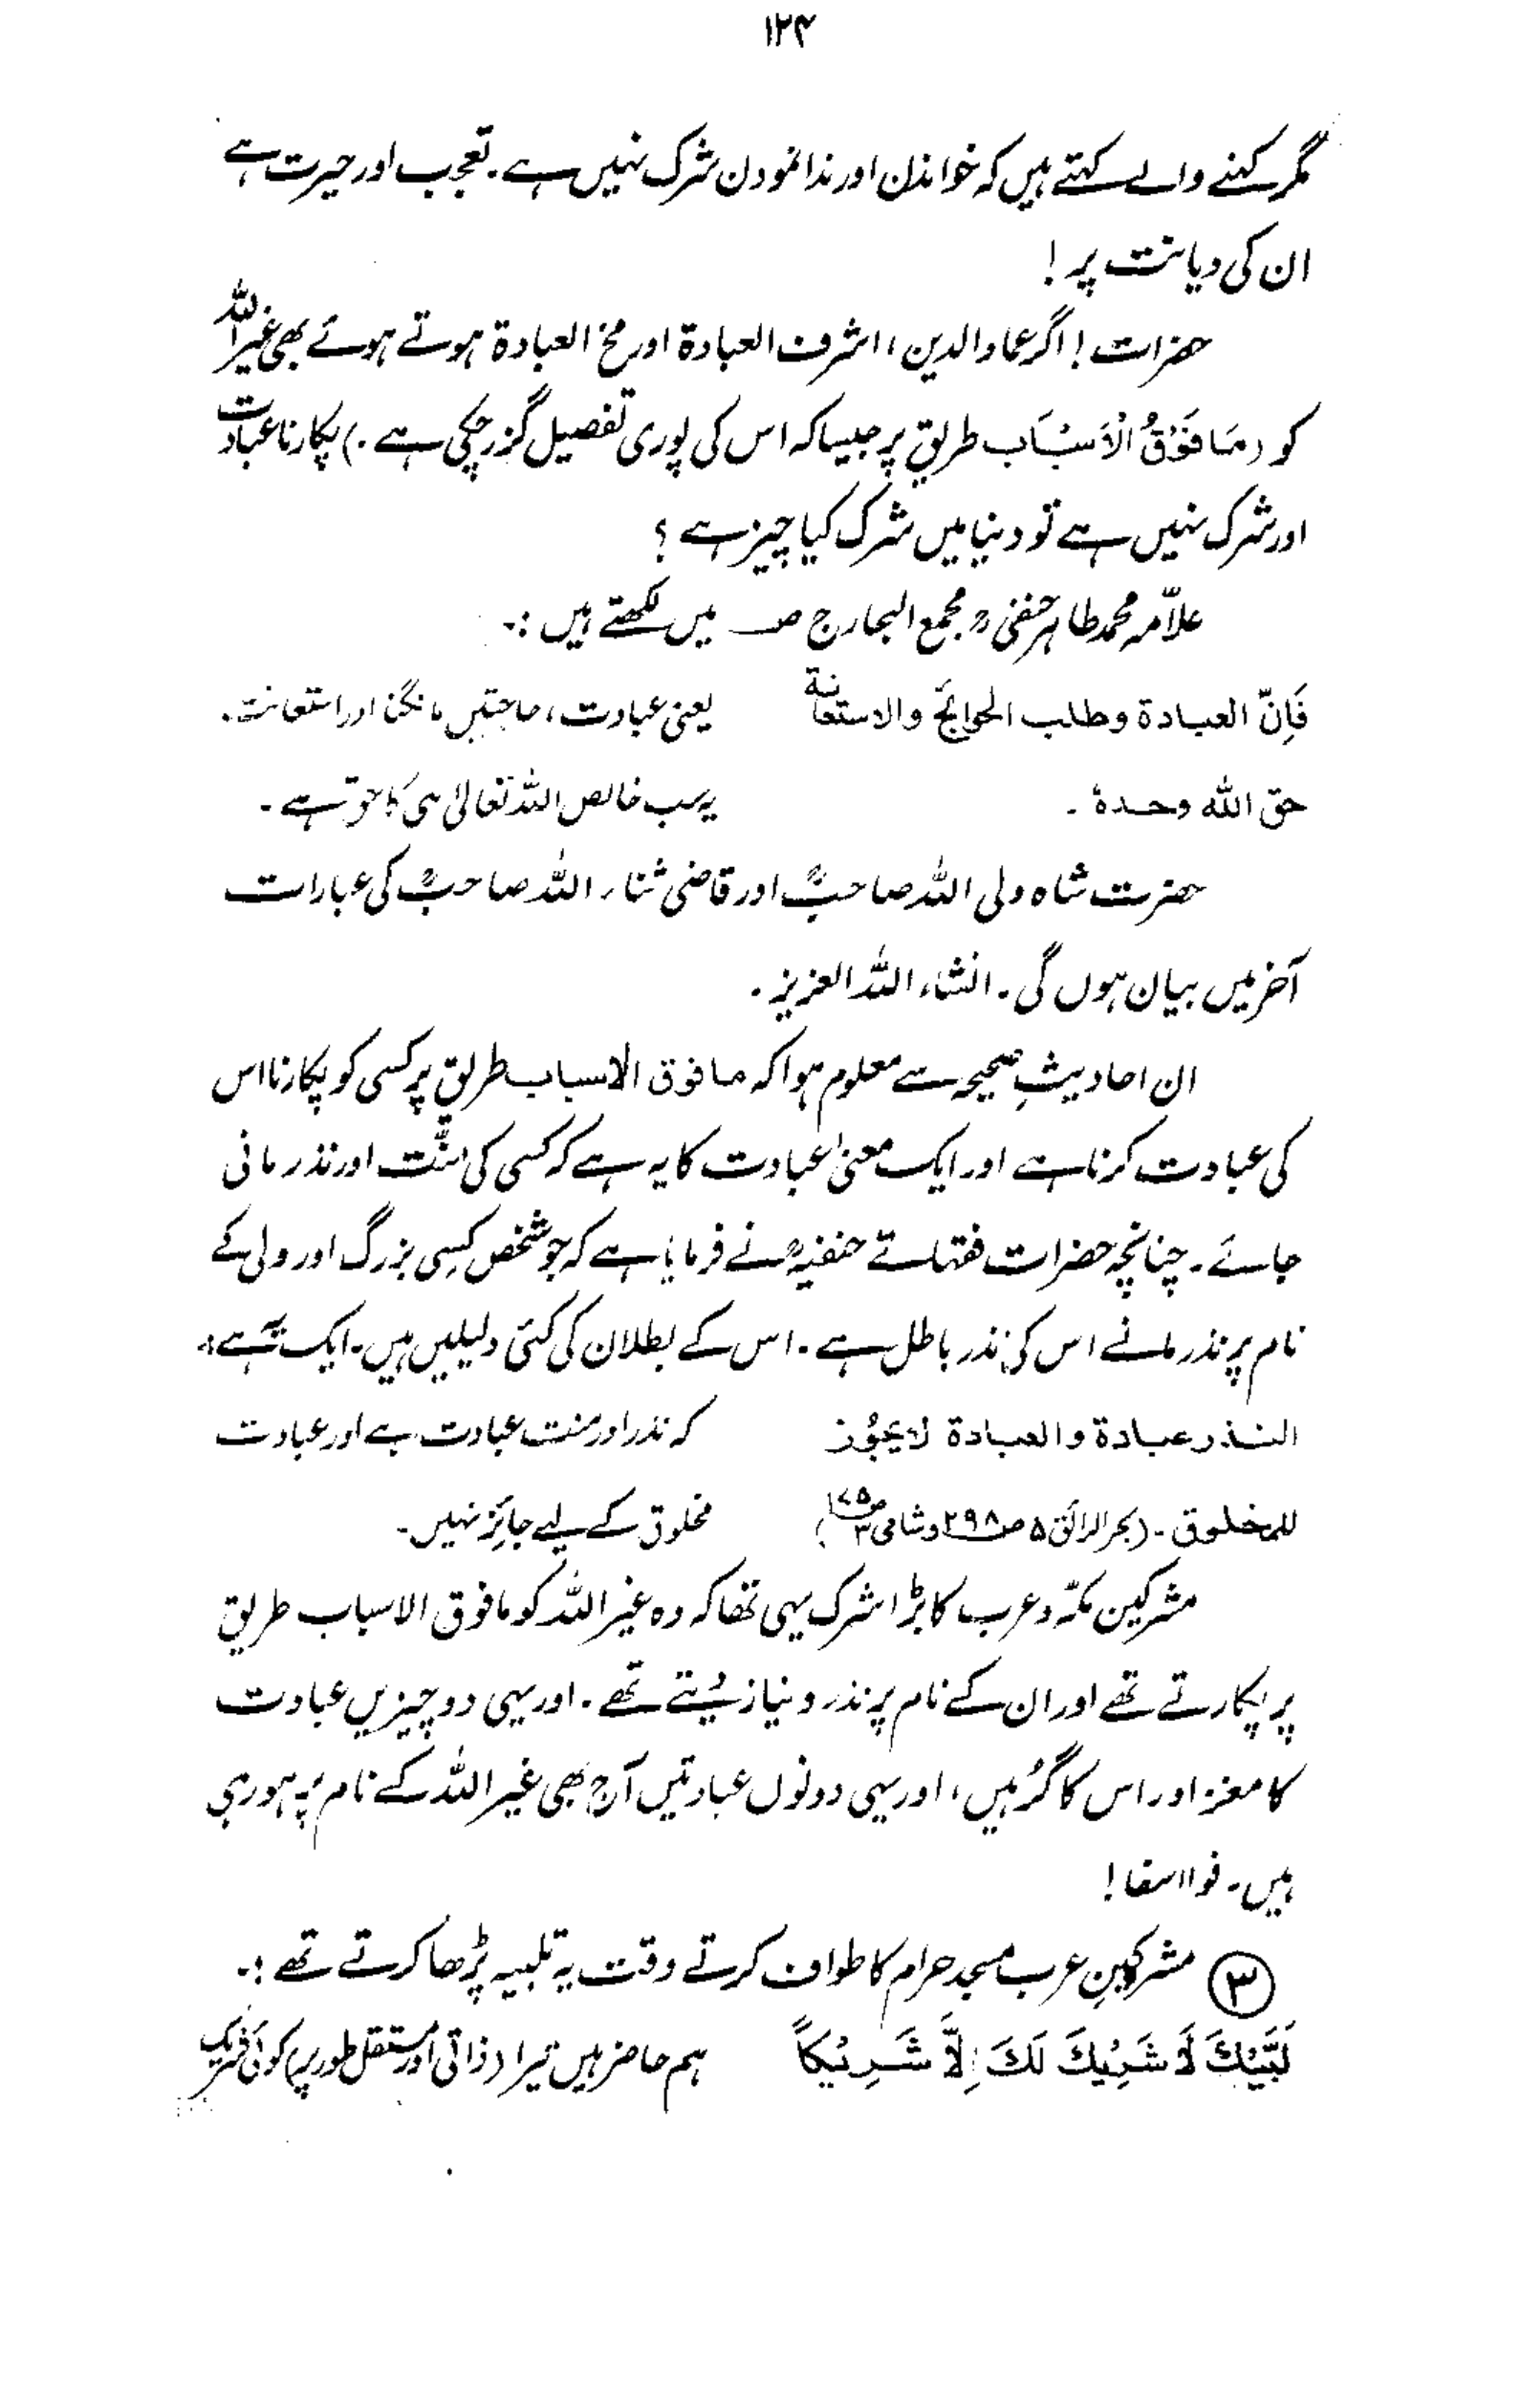 ۱۲۴
مگر کہنے والے کہتے ہیں کہ خواندن اور ندا نمودن شرک نہیں ہے۔ تعجب اور حیرت ہے
ان کی دیانت پر!
حضرات! اگر عماد الدین، اشرف العبادة اور مخ العبادة ہوتے ہوئے بھی غیر اللہ
کو (مَا فَوْقُ الْاَسْبَاب طریق پر جیسا کہ اس کی پوری تفصیل گزر چکی ہے۔) پکارنا عبادت
اور شرک نہیں ہے تو دنیا میں شرک کیا چیز ہے؟
علاّمہ محمد طاہر حنفیؒ مجمع البحار ج صـ میں لکھتے ہیں :-
فَاِنّ العبادة وطلب الحوائج والاستعانة یعنی عبادت، حاجتیں مانگنی اور استعانت۔
حق الله وحدهٗ۔ یہ سب خالص اللہ تعالیٰ ہی کا حق ہے۔
حضرت شاہ ولی اللہ صاحبؒ اور قاضی ثناء اللہ صاحبؒ کی عبارات
آخر میں بیان ہوں گی۔ انشاء اللہ العزیز۔
ان احادیثِ صحیحہ سے معلوم ہوا کہ مافوق الاسباب طریق پر کسی کو پکارنا اس
کی عبادت کرنا ہے اور ایک معنیٰ عبادت کا یہ ہے کہ کسی کی منّت اور نذر مانی
جائے۔ چنانچہ حضرات فقہائے حنفیہؒ نے فرمایا ہے کہ جو شخص کسِی بزرگ اور ولی کے
نام پر نذر مانے اس کی نذر باطل ہے۔ اس کے بطلان کی کئی دلیلیں ہیں۔ ایک یہ ہے:
النذر عبادة والعبادة لا يجوز کہ نذر اور منت عبادت ہے اور عبادت
للمخلوق۔ (بحر الرائق ۵ ص ۲۹۸ و شامی مخلوق کے لیے جائز نہیں۔
مشرکین مکّہ و عرب کا بڑا شرک یہی تھا کہ وہ غیر اللہ کو مافوق الاسباب طریق
پر پکارتے تھے اور ان کے نام پر نذر و نیاز دیتے تھے۔ اور یہی دو چیزیں عبادت
کا مغز اور اس کا گُر ہیں، اور یہی دونوں عبادتیں آج بھی غیر اللہ کے نام پر ہو رہی
ہیں۔ فوا اسفا!
۳ مشرکینِ عرب مسجد حرام کا طواف کرتے وقت یہ تلبیہ پڑھا کرتے تھے :-
لَبَّيْكَ لَا شَرِيْكَ لَكَ اِلَّا شَرِيْكاً ہم حاضر ہیں تیرا (ذاتی اور مستقل طور پر) کوئی شریک